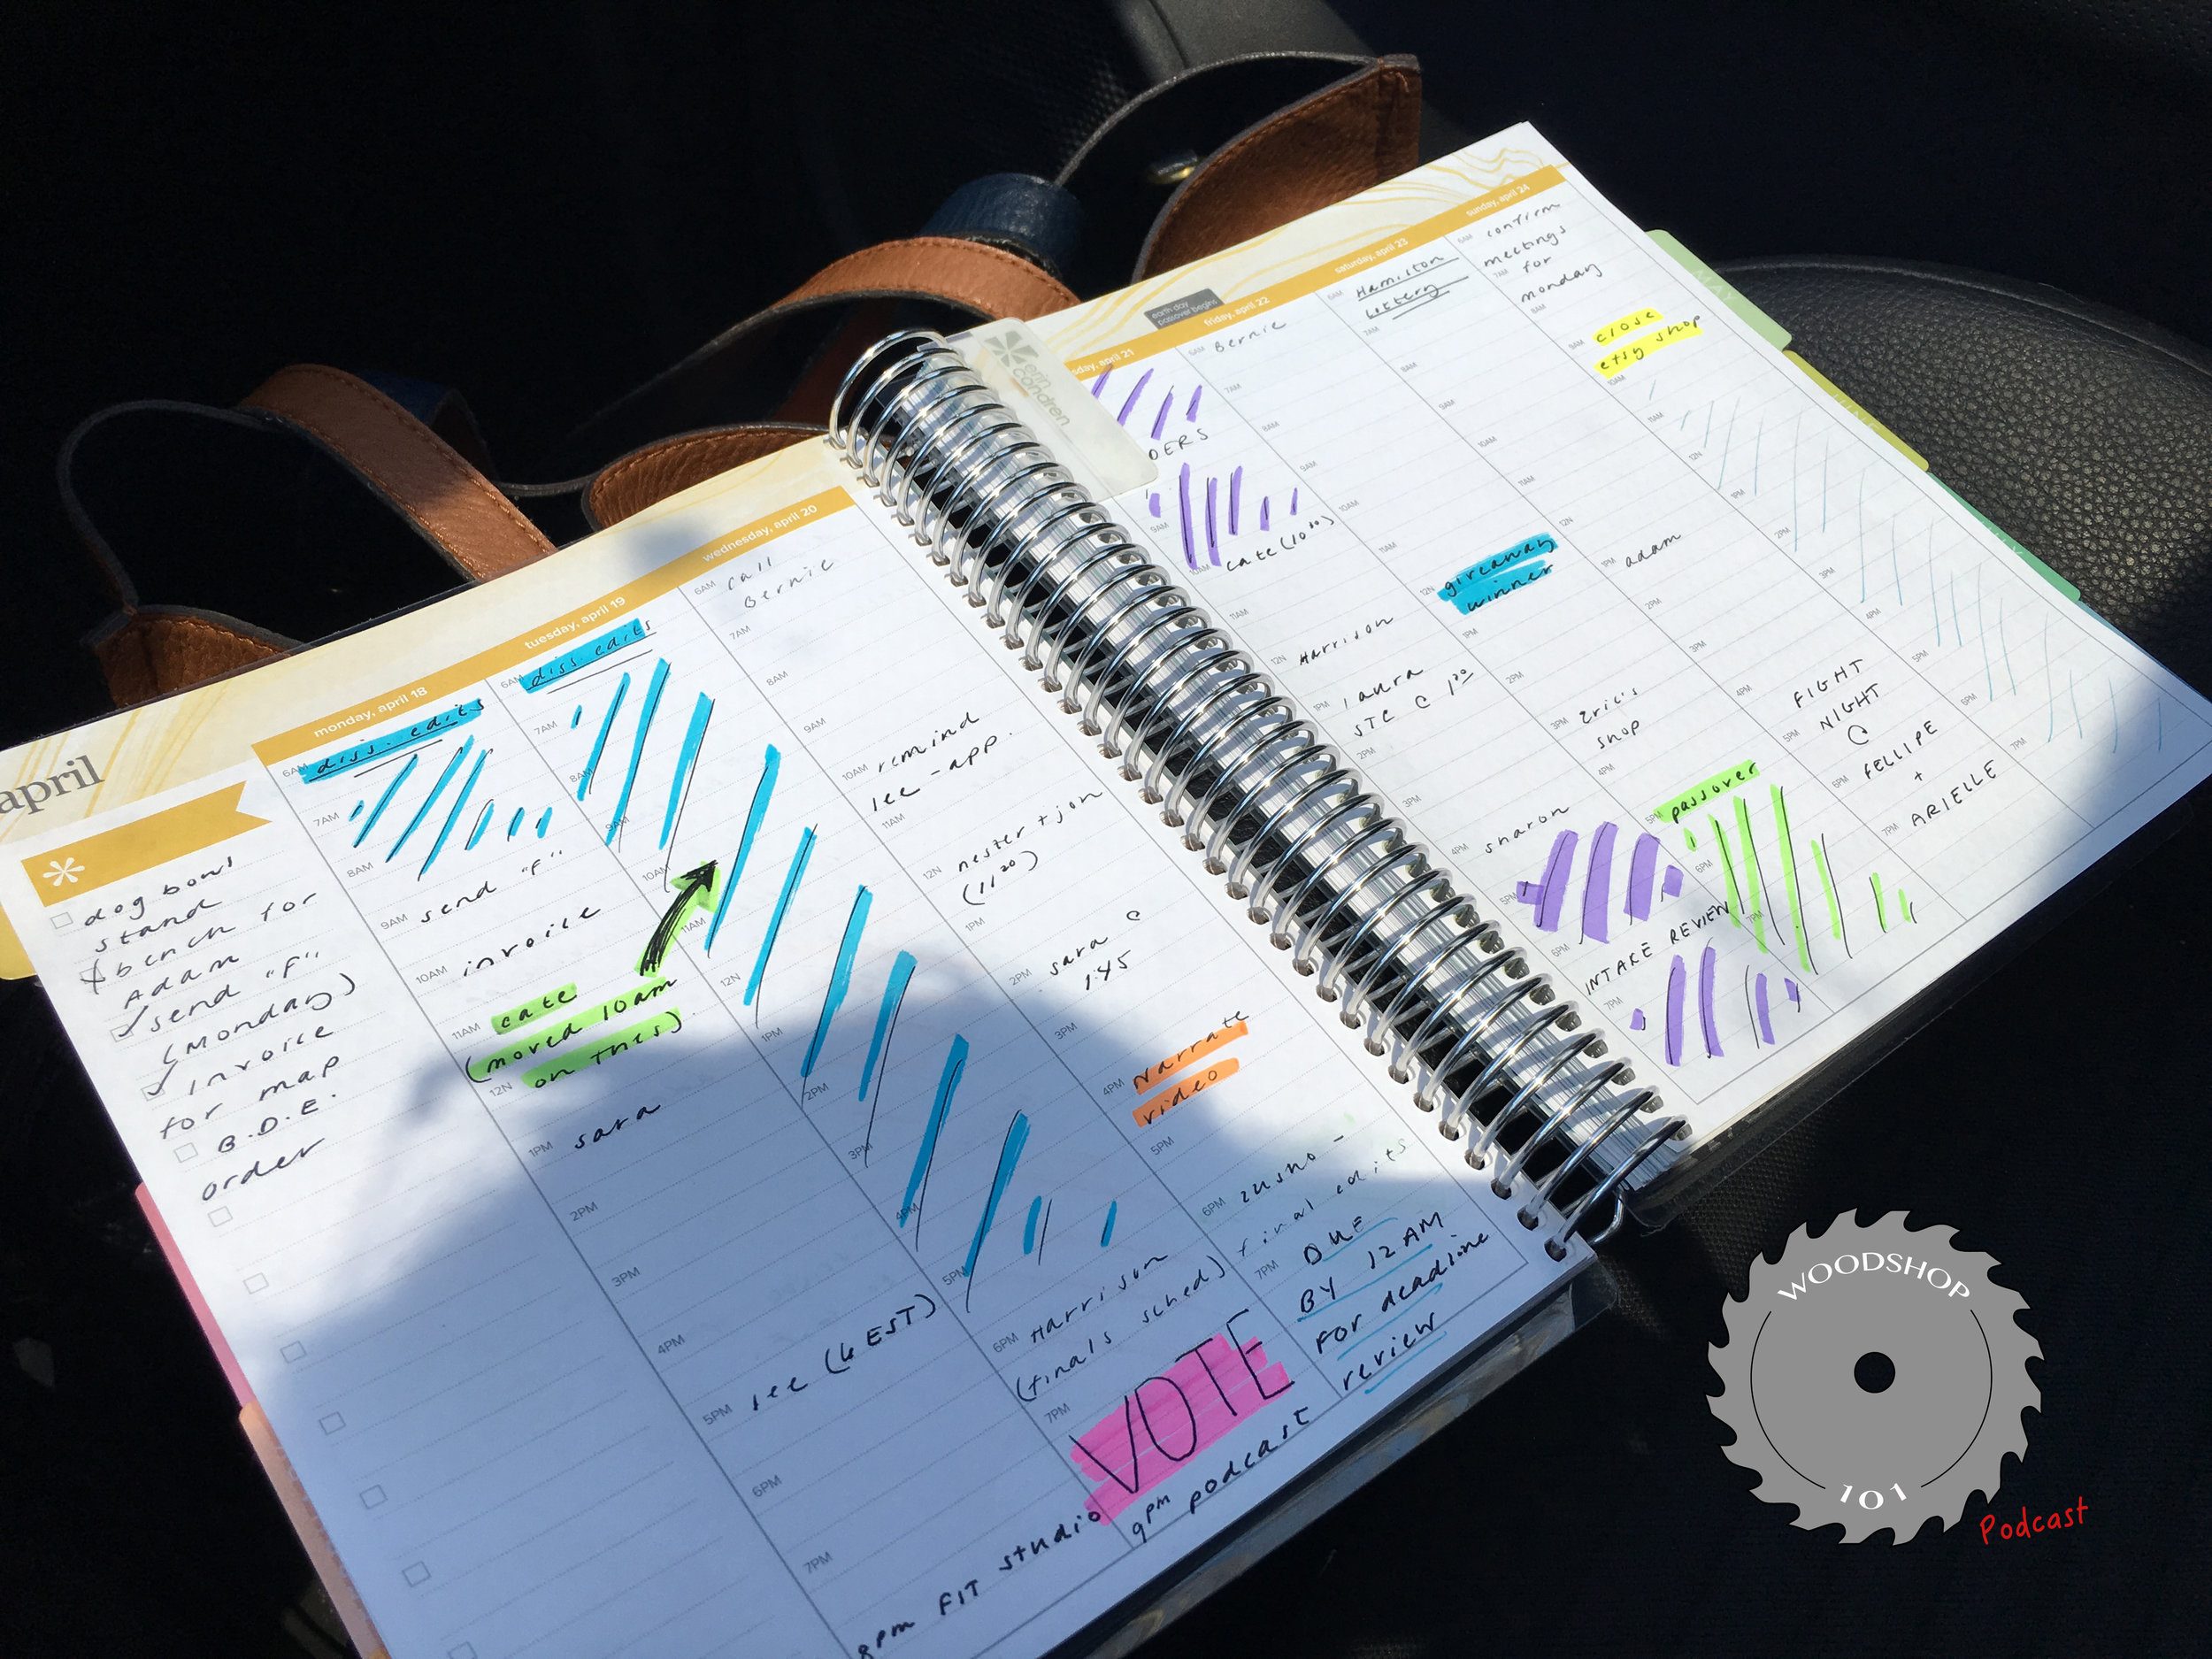 april
dog bowl
stand
bench for
Adam
send "F"
(Monday)
invoice
for map
B.D.E.
order
monday, april 18
6AM
diss. edits
7AM
8AM
send "F"
9AM
invoice
10AM
11AM
cate
(moved 10am
on tues)
12N
1PM
sara
2PM
3PM
4PM
5PM
lee (6 EST)
6PM
7PM
8pm FIT studio
tuesday, april 19
6AM
diss. edits
7AM
8AM
9AM
10AM
11AM
12N
1PM
2PM
3PM
4PM
5PM
6PM
Harrison
(finals sched)
7PM
VOTE
9pm podcast
wednesday, april 20
6AM
call
Bernie
7AM
8AM
9AM
10AM
remind
lee - app.
11AM
12N
nester + jon
(11:30)
1PM
2PM
sara @
1:45
3PM
4PM
Narrate
video
5PM
6PM
zusho -
final edits
7PM
DUE
BY 12AM
FOR deadline
review
erin
condren
sday, april 21
DERS
9AM
10AM
cate (10
11AM
12N
Harrison
1PM
laura
STC @ 1
2PM
3PM
4PM
sharon
5PM
6PM
INTAKE REVIEW
7PM
earth day
passover begins
friday, april 22
6AM
Bernie
7AM
8AM
9AM
10AM
11AM
12N
giveaway
winner
1PM
2PM
3PM
Eric's
shop
4PM
5PM
passover
6PM
7PM
saturday, april 23
6AM
Hamilton
Lottery
7AM
8AM
9AM
10AM
11AM
12N
1PM
adam
2PM
3PM
4PM
FIGHT
NIGHT
5PM
@
6PM
FELLIPE
+
7PM
ARIELLE
sunday, april 24
6AM
confirm
meetings
7AM
for
monday
8AM
9AM
close
etsy shop
10AM
11AM
12N
1PM
2PM
3PM
4PM
5PM
6PM
7PM
MAY
WOODSHOP
101
Podcast